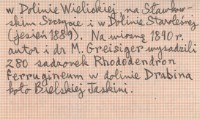 w Dolinie Wielickiej na Sławkow-
skim Szczycie i w Dolinie Staroleśnej
(jesień 1889). Na wiosnę 1890 r.
autor i dr M. Greisiger wysadzili
280 sadzonek Rhododendron
Ferrugineum w dolinie Drabina
koło Bielskiej Jaskini.